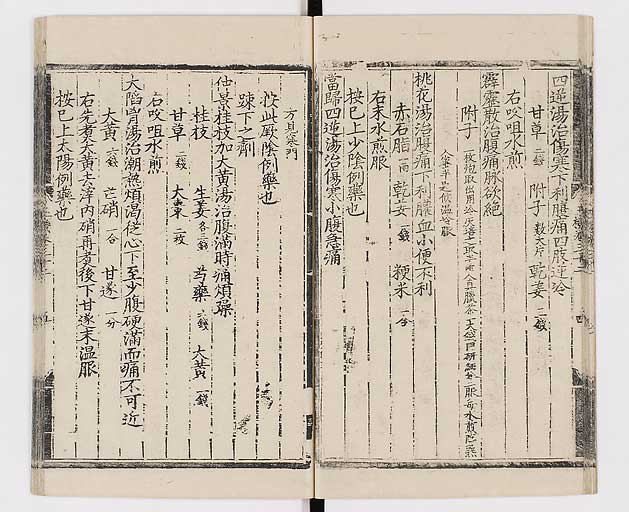 四逆湯治傷寒下利腹痛四肢逆冷
甘草 二錢 附子 大片 乾姜 二錢
右㕮咀水煎
霹靂散治腹痛脉欲絶
附子 一枚炮取出用冷灰培之取半兩入眞臘茶一大錢同研細分二服每水煎
入蜜半匙候溫冷服
桃花湯治腹痛下利膿血小便不利
赤石脂 一兩 乾姜 二錢 粳米 一合
右末水煎服
按已上少陰例藥也
當歸四逆湯治傷寒小腹急痛
方見寒門
按此厥陰例藥也
踈下之劑
仲景桂枝加大黃湯治腹滿時痛煩躁
桂枝 生姜 各三錢 芍藥 六錢 大黃 一錢
甘草 二錢 大棗 二枚
右㕮咀水煎
大陷胷湯治潮熱煩渴從心下至少腹硬滿而痛不可近
大黃 六錢 芒硝 一合 甘遂 一分
右先煮大黃去滓內硝再煮後下甘遂末温服
按已上太陽例藥也
四
五